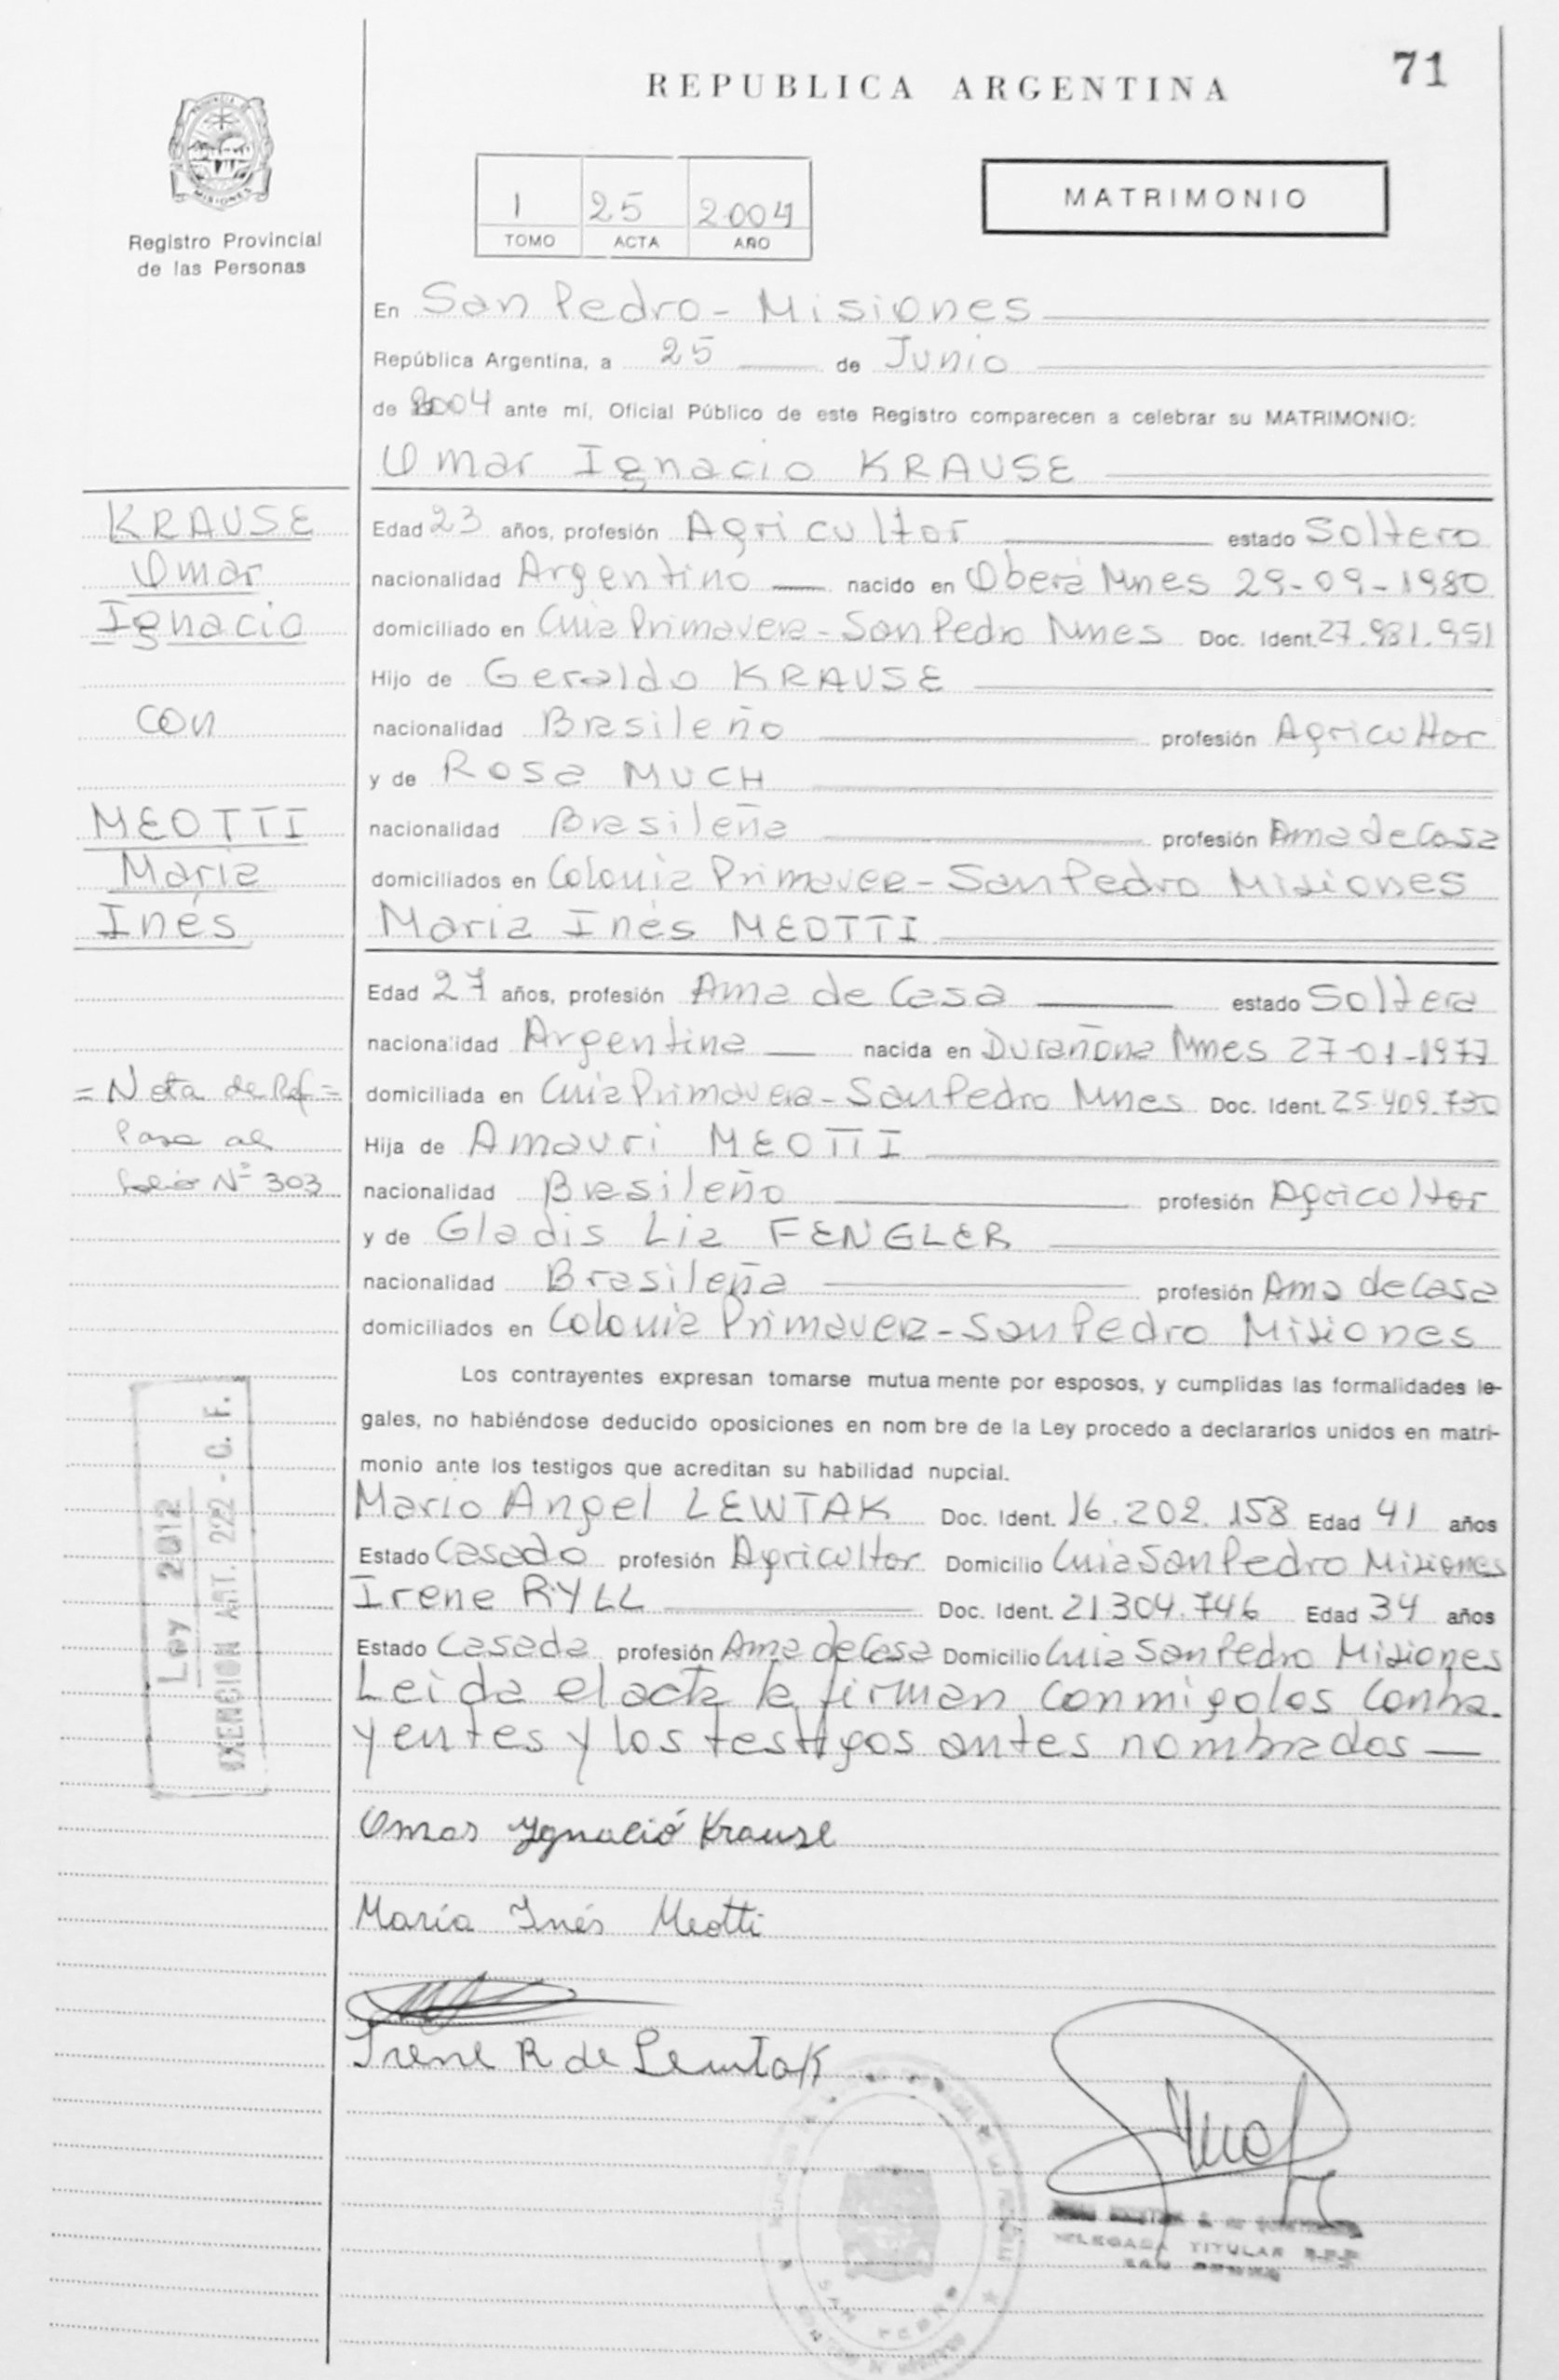 71
REPUBLICA ARGENTINA
PROVINCIA DE
MISIONES
Registro Provincial
de las Personas
1 25 2004
TOMO ACTA AÑO
MATRIMONIO
En San Pedro - Misiones
República Argentina, a 25 de Junio
de 2004 ante mí, Oficial Público de este Registro comparecen a celebrar su MATRIMONIO:
Omar Ignacio KRAUSE
KRAUSE
Omar
Ignacio
con
MEOTTI
Maria
Inés
= Nota de Ref =
Pasa al
folio Nº 303
Edad 23 años, profesión Agricultor estado Soltero
nacionalidad Argentino nacido en Oberá Mnes 29-09-1980
domiciliado en Cnia Primavera - San Pedro Mnes Doc. Ident. 27.981.951
Hijo de Geraldo KRAUSE
nacionalidad Brasileño profesión Agricultor
y de Rosa MUCH
nacionalidad Brasileña profesión Ama de Casa
domiciliados en Colonia Primavera - San Pedro Misiones
Maria Inés MEOTTI
Edad 27 años, profesión Ama de Casa estado Soltera
nacionalidad Argentina nacida en Durañona Mnes 27-01-1977
domiciliada en Cnia Primavera - San Pedro Mnes Doc. Ident. 25.409.730
Hija de Amauri MEOTTI
nacionalidad Brasileño profesión Agricultor
y de Gladis Lia FENGLER
nacionalidad Brasileña profesión Ama de Casa
domiciliados en Colonia Primavera - San Pedro Misiones
Los contrayentes expresan tomarse mutua mente por esposos, y cumplidas las formalidades le-
gales, no habiéndose deducido oposiciones en nom bre de la Ley procedo a declararlos unidos en matri-
monio ante los testigos que acreditan su habilidad nupcial.
Mario Angel LEWTAK Doc. Ident. 16.202.158 Edad 41 años
Estado Casado profesión Agricultor Domicilio Cnia San Pedro Misiones
Irene RYLL Doc. Ident. 21304.746 Edad 34 años
Estado Casada profesión Ama de Casa Domicilio Cnia San Pedro Misiones
Leida el acta la firman conmigo los contra-
yentes y los testigos antes nombrados
Ley 2012
EXENCION ART. 222 - C. F.
Omar Ygnació Krause
María Inés Meotti
Irene R de Lewtak
DELEGADA TITULAR R.P.P.
SAN PEDRO
SAN PEDRO